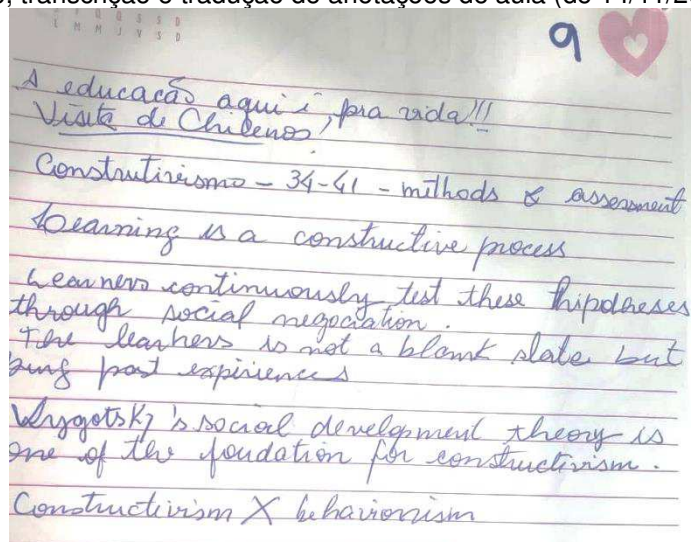 transcrição e tradução de anotações de aula
T Q Q S S D
L M M J V S D
9
A educação aqui é, pra vida!!!
Visita de Chilenos,
Construtivismo - 34-41 - methods & assessment
Learning is a constructive process
Learners continuously test these hipotheses
through social negociation.
The learners is not a blank slate but
bring past expiriences
Vygotsky's social development theory is
one of the foudation for constructivism.
Constructivism X behaviorism